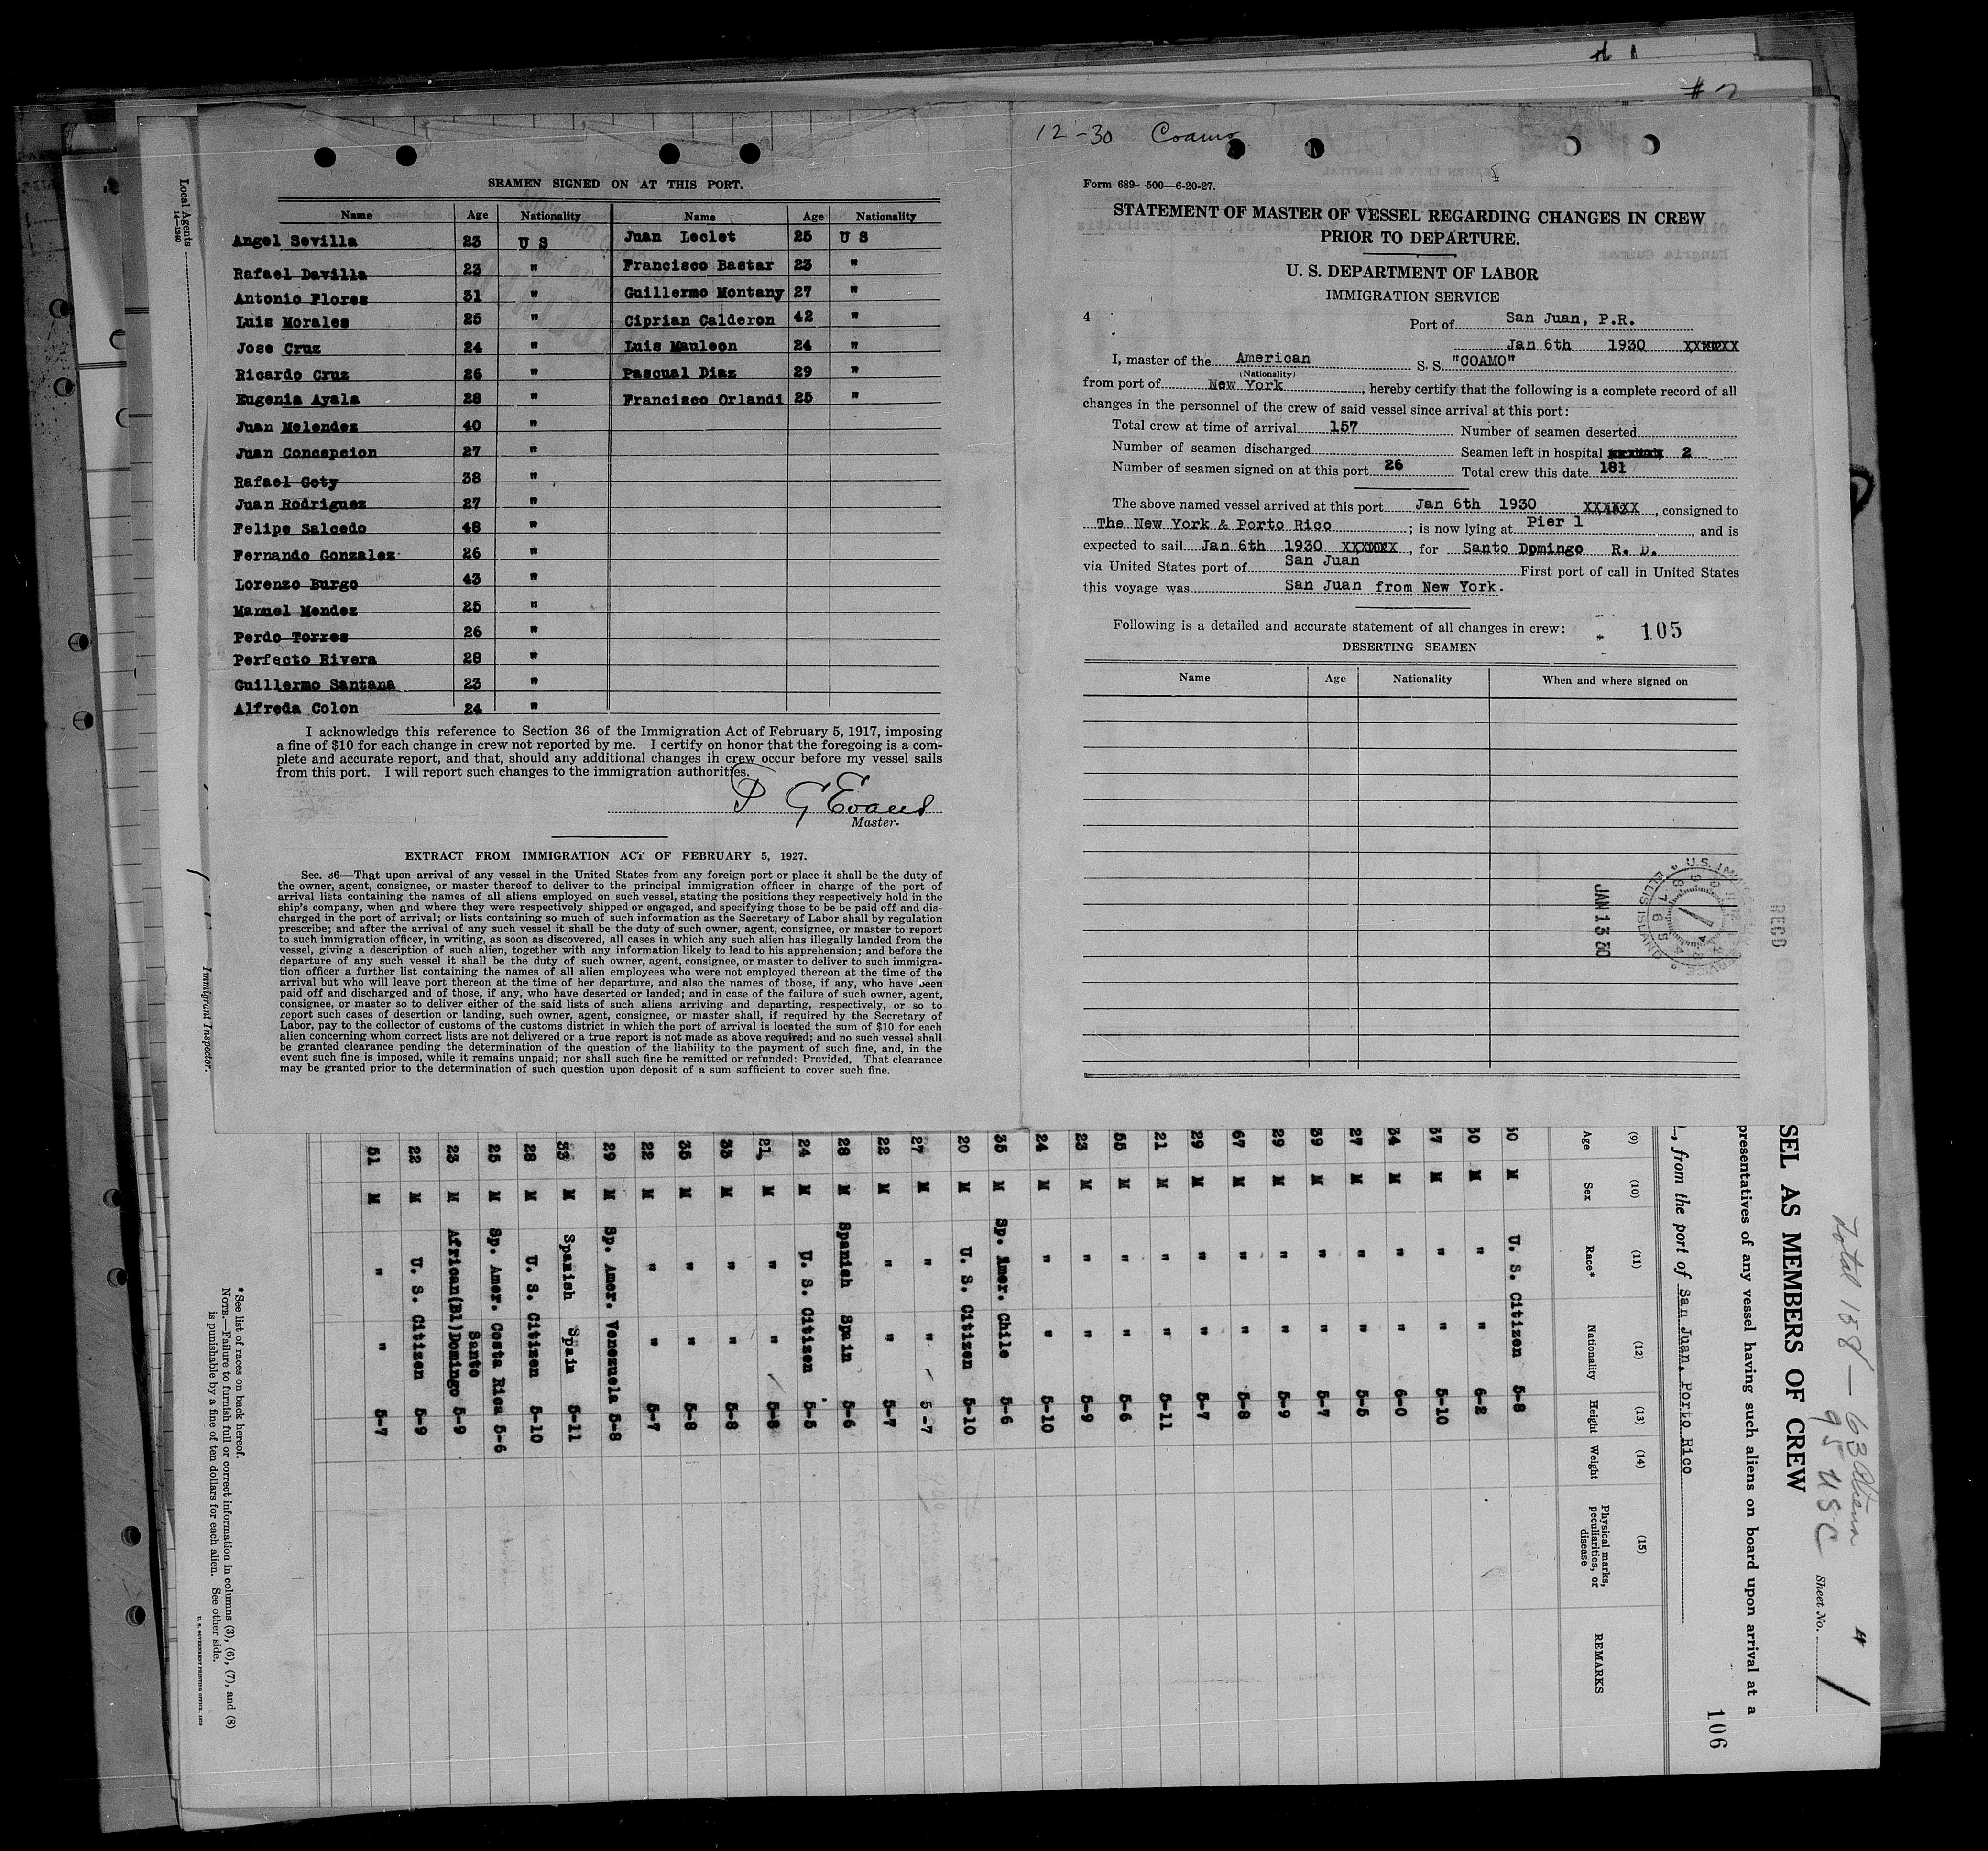 # 2
12-30 Coamo
SEAMEN SIGNED ON AT THIS PORT.
Name Age Nationality Name Age Nationality
Angel Sevilla 23 U S Juan Leclet 25 U S
Rafael Davilla 23 " Francisco Bastar 23 "
Antonio Flores 31 " Guillermo Montany 27 "
Luis Morales 25 " Ciprian Calderon 42 "
Jose Cruz 24 " Luis Mauleon 24 "
Ricardo Cruz 26 " Pascual Diaz 29 "
Eugenia Ayala 28 " Francisco Orlandi 25 "
Juan Melendez 40 "
Juan Concepcion 27 "
Rafael Goty 38 "
Juan Rodriguez 27 "
Felipe Salcedo 48 "
Fernando Gonzalez 26 "
Lorenzo Burgo 43 "
Manuel Mendez 25 "
Perdo Torres 26 "
Perfecto Rivera 28 "
Guillermo Santana 23 "
Alfreda Colon 24 "
I acknowledge this reference to Section 36 of the Immigration Act of February 5, 1917, imposing
a fine of $10 for each change in crew not reported by me. I certify on honor that the foregoing is a com-
plete and accurate report, and that, should any additional changes in crew occur before my vessel sails
from this port. I will report such changes to the immigration authorities.
P G Evans
Master.
EXTRACT FROM IMMIGRATION ACT OF FEBRUARY 5, 1927.
Sec. 36—That upon arrival of any vessel in the United States from any foreign port or place it shall be the duty of
the owner, agent, consignee, or master thereof to deliver to the principal immigration officer in charge of the port of
arrival lists containing the names of all aliens employed on such vessel, stating the positions they respectively hold in the
ship's company, when and where they were respectively shipped or engaged, and specifying those to be be paid off and dis-
charged in the port of arrival; or lists containing so much of such information as the Secretary of Labor shall by regulation
prescribe; and after the arrival of any such vessel it shall be the duty of such owner, agent, consignee, or master to report
to such immigration officer, in writing, as soon as discovered, all cases in which any such alien has illegally landed from the
vessel, giving a description of such alien, together with any information likely to lead to his apprehension; and before the
departure of any such vessel it shall be the duty of such owner, agent, consignee, or master to deliver to such immigra-
tion officer a further list containing the names of all alien employees who were not employed thereon at the time of the
arrival but who will leave port thereon at the time of her departure, and also the names of those, if any, who have been
paid off and discharged and of those, if any, who have deserted or landed; and in case of the failure of such owner, agent,
consignee, or master so to deliver either of the said lists of such aliens arriving and departing, respectively, or so to
report such cases of desertion or landing, such owner, agent, consignee, or master shall, if required by the Secretary of
Labor, pay to the collector of customs of the customs district in which the port of arrival is located the sum of $10 for each
alien concerning whom correct lists are not delivered or a true report is not made as above required; and no such vessel shall
be granted clearance pending the determination of the question of the liability to the payment of such fine, and, in the
event such fine is imposed, while it remains unpaid; nor shall such fine be remitted or refunded: Provided, That clearance
may be granted prior to the determination of such question upon deposit of a sum sufficient to cover such fine.
Form 689- 500—6-20-27.
STATEMENT OF MASTER OF VESSEL REGARDING CHANGES IN CREW
PRIOR TO DEPARTURE.
U. S. DEPARTMENT OF LABOR
IMMIGRATION SERVICE
4
Port of San Juan, P.R.
Jan 6th 1930
I, master of the American S. S. "COAMO"
(Nationality)
from port of New York, hereby certify that the following is a complete record of all
changes in the personnel of the crew of said vessel since arrival at this port:
Total crew at time of arrival 157 Number of seamen deserted
Number of seamen discharged Seamen left in hospital 2
Number of seamen signed on at this port 26 Total crew this date 181
The above named vessel arrived at this port Jan 6th 1930 XXXXXX, consigned to
The New York & Porto Rico; is now lying at Pier 1, and is
expected to sail Jan 6th 1930 XXXXXX, for Santo Domingo R. D.
via United States port of San Juan First port of call in United States
this voyage was San Juan from New York.
Following is a detailed and accurate statement of all changes in crew:
105
DESERTING SEAMEN
Name Age Nationality When and where signed on
JAN 13 30
RECD
Local Agents
14—1240
Immigrant Inspector.
Total 158 — 63 Aliens
95 USC
Sheet No. 1
SEL AS MEMBERS OF CREW
presentatives of any vessel having such aliens on board upon arrival at a
, from the port of San Juan, Porto Rico
106
(9) (10) (11) (12) (13) (14) (15)
Age Sex Race* Nationality Height Weight Physical marks, peculiarities, or disease REMARKS
30 M U. S. Citizen 5-8
30 M " " 6-2
37 M " " 5-10
34 M " " 6-0
27 M " " 5-5
39 M " " 5-7
29 M " " 5-9
67 M " " 5-8
29 M " " 5-7
21 M " " 5-11
55 M " " 5-6
23 M " " 5-9
24 M " " 5-10
35 M Sp. Amer. Chile 5-6
20 M U. S. Citizen 5-10
27 M " " 5-7
22 M " " 5-7
28 M Spanish Spain 5-6
24 M U. S. Citizen 5-5
21 M " " 5-8
33 M " " 5-8
35 M " " 5-8
22 M " " 5-7
29 M Sp. Amer. Venezuela 5-8
33 M Spanish Spain 5-11
28 M U. S. Citizen 5-10
25 M Sp. Amer. Costa Rica 5-6
23 M African(Bl) Santo Domingo 5-9
22 M U. S. Citizen 5-9
51 M " " 5-7
* See list of races on back hereof.
NOTE.—Failure to furnish full or correct information in columns (3), (6), (7), and (8)
is punishable by a fine of ten dollars for each alien. See other side.